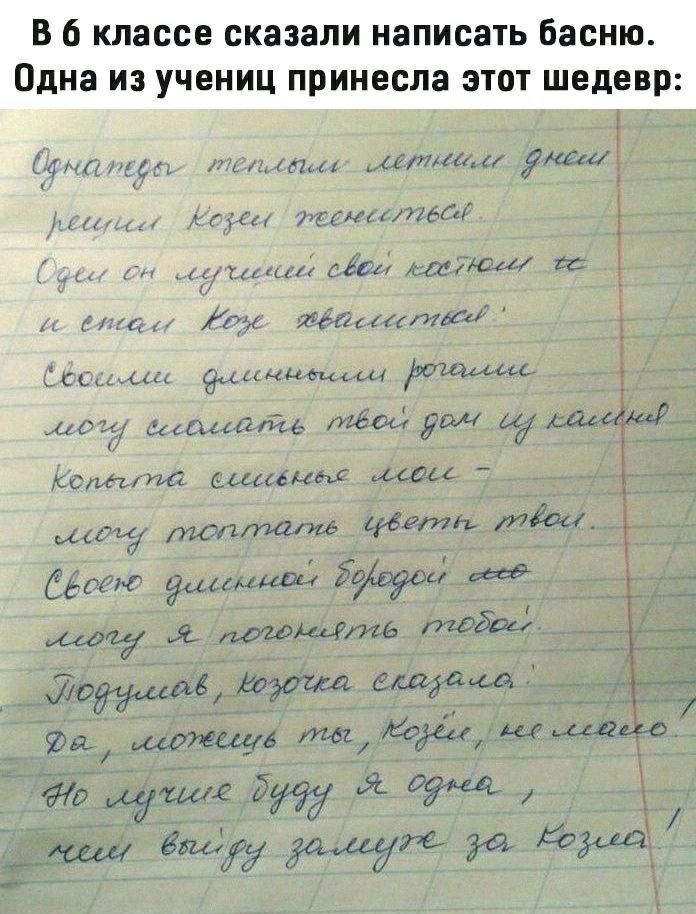 В 6 классе сказали написать басню.
Одна из учениц принесла этот шедевр:
Однажды теплым летним днем
решил Козел жениться.
Одел он лучший свой костюм и
и стал Козе хвалиться:
Своими длинными рогами
могу сломать твой дом из камня
Копыта сильные мои -
могу топтать цветы твои.
Своею длинной бородой мо
могу я погонять тобой.
Подумав, козочка сказала:
Да, можешь ты, Козёл, не мало!
Но лучше буду я одна,
чем выйду замуж за Козла!